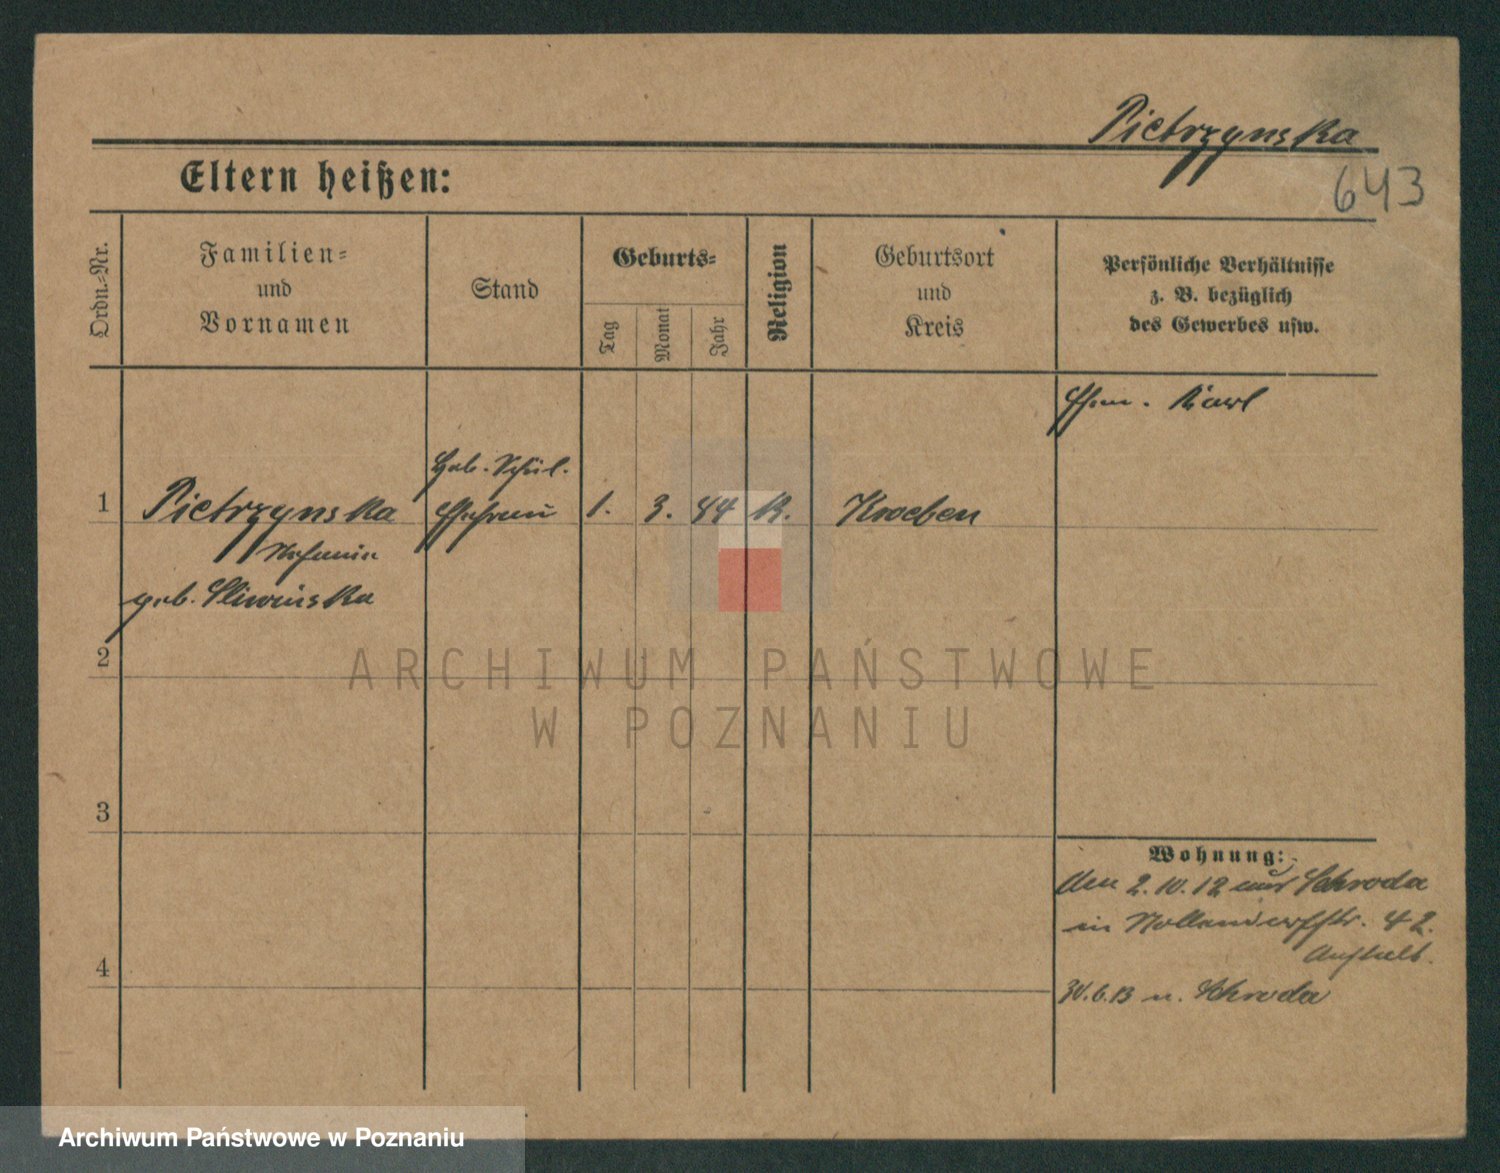 Pietrzynska
643
Eltern heißen:
Ordn.-Nr.
Familien=
und
Vornamen
Stand
Geburts=
Tag
Monat
Jahr
Religion
Geburtsort
und
Kreis
Persönliche Verhältnisse
z. B. bezüglich
des Gewerbes usw.
Ehem. Karl
1
Pietrzynska
Ehefrau
1.
3.
44
K.
Kroeben
geb. Sliwinska
2
3
Wohnung:
den 2.10.12 aus Schroda
in Nollendorfstr. 42.
4
30.6.13 n. Schroda
ARCHIWUM PAŃSTWOWE
W POZNANIU
Archiwum Państwowe w Poznaniu